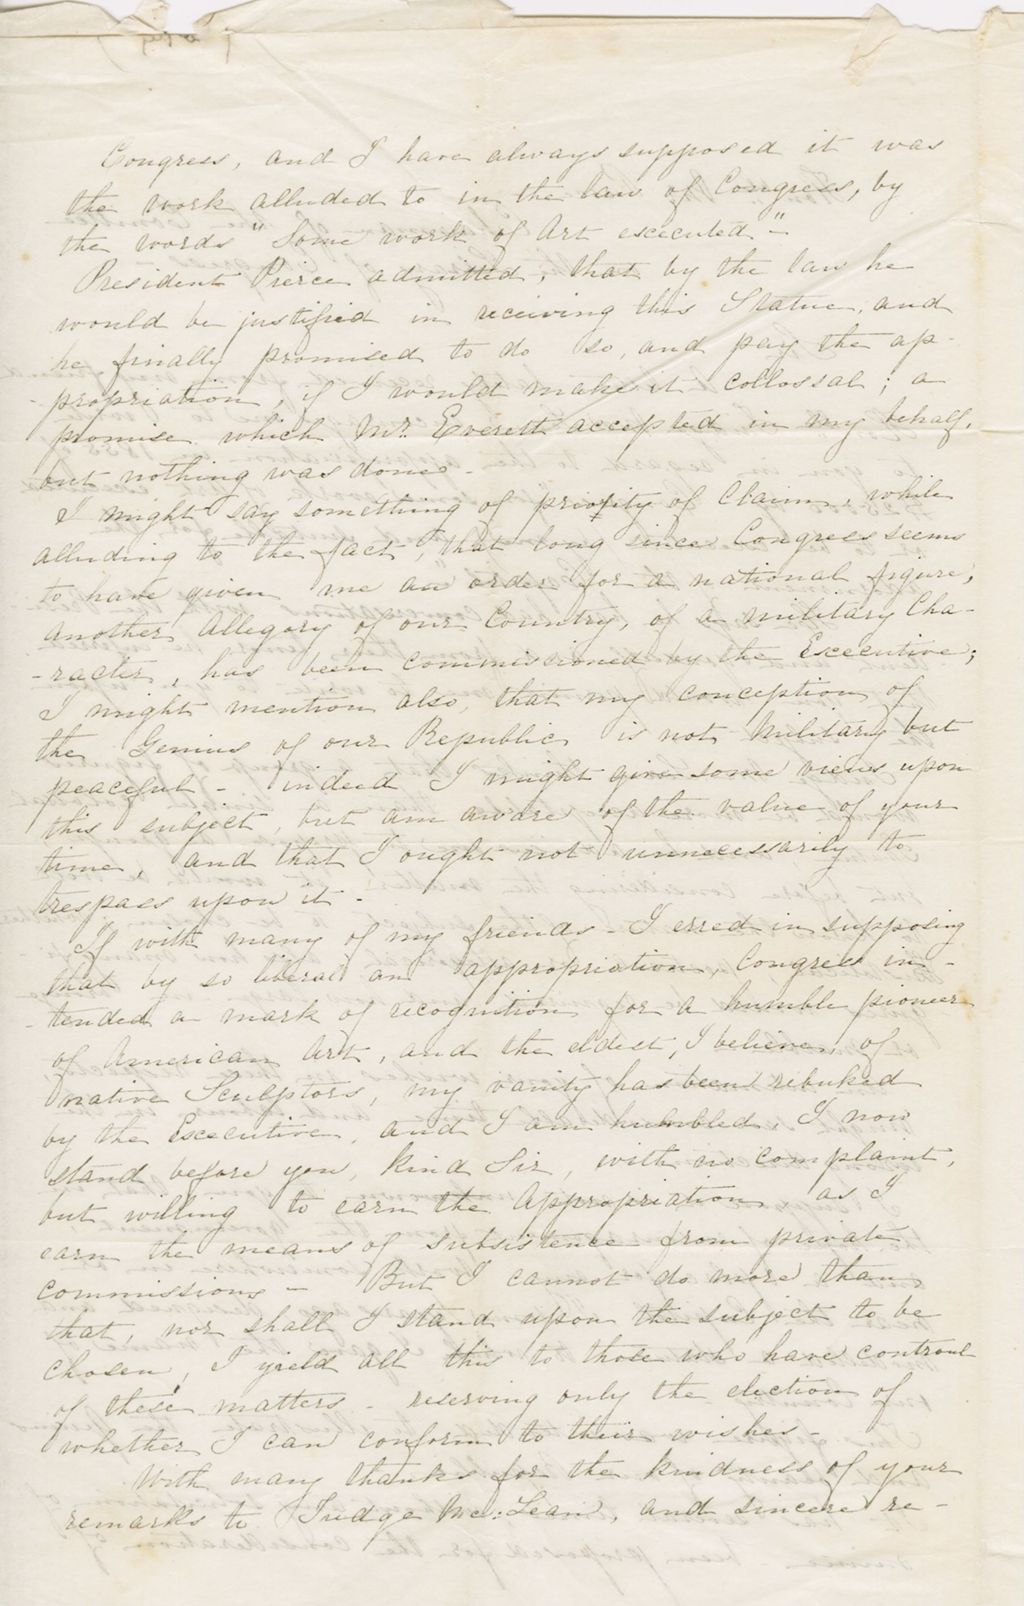 Congress, and I have always supposed it was
the work alluded to in the law of Congress, by
the words "Some work of Art excecuted"-
President Pierce admitted, that by the law he
would be justified in receiving this Statue, and
he finally promised to do so, and pay the ap-
-propriation, if I would make it collossal; a
promise which Mr. Everett accepted in my behalf,
but nothing was done -
I might say something of priority of Claim, while
alluding to the fact, that long since Congress seems
to have given me an order for a national figure,
another Allegory of our Country, of a military Cha-
-racter, has been commissioned by the Excecutive;
I might mention also, that my conception of
the Genius of our Republic is not Military but
peaceful - indeed I might give some views upon
this subject, but am aware of the value of your
time, and that I ought not unnecessarily to
trespass upon it -
If with many of my friends - I erred in supposing
that by so liberal an appropriation, Congress in-
-tended a mark of recognition for a humble pioneer
of American Art, and the eldest, I believe, of
native Sculptors, my vanity has been rebuked
by the Excecutive, and I am humbled, I now
stand before you, kind Sir, with no complaint,
but willing to earn the Appropriation, as I
earn the means of subsistence from private
commissions - But I cannot do more than
that, nor shall I stand upon the subject to be
chosen, I yield all this to those who have controul
of these matters - reserving only the election of
whether I can conform to their wishes -
With many thanks for the kindness of your
remarks to Judge Mc:Lean, and sincere re-